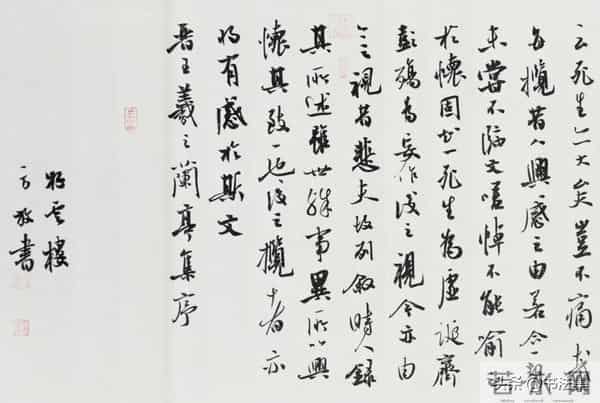 云死生亦大矣豈不痛哉
每攬昔人興感之由若合一契
未嘗不臨文嗟悼不能喻
於懷固知一死生為虛誕齊
彭殤為妄作後之視今亦由
今之視昔悲夫故列敘時人錄
其所述雖世殊事異所以興
懷其致一也後之攬者亦
將有感於斯文
晉王羲之蘭亭集序
雲樓
書